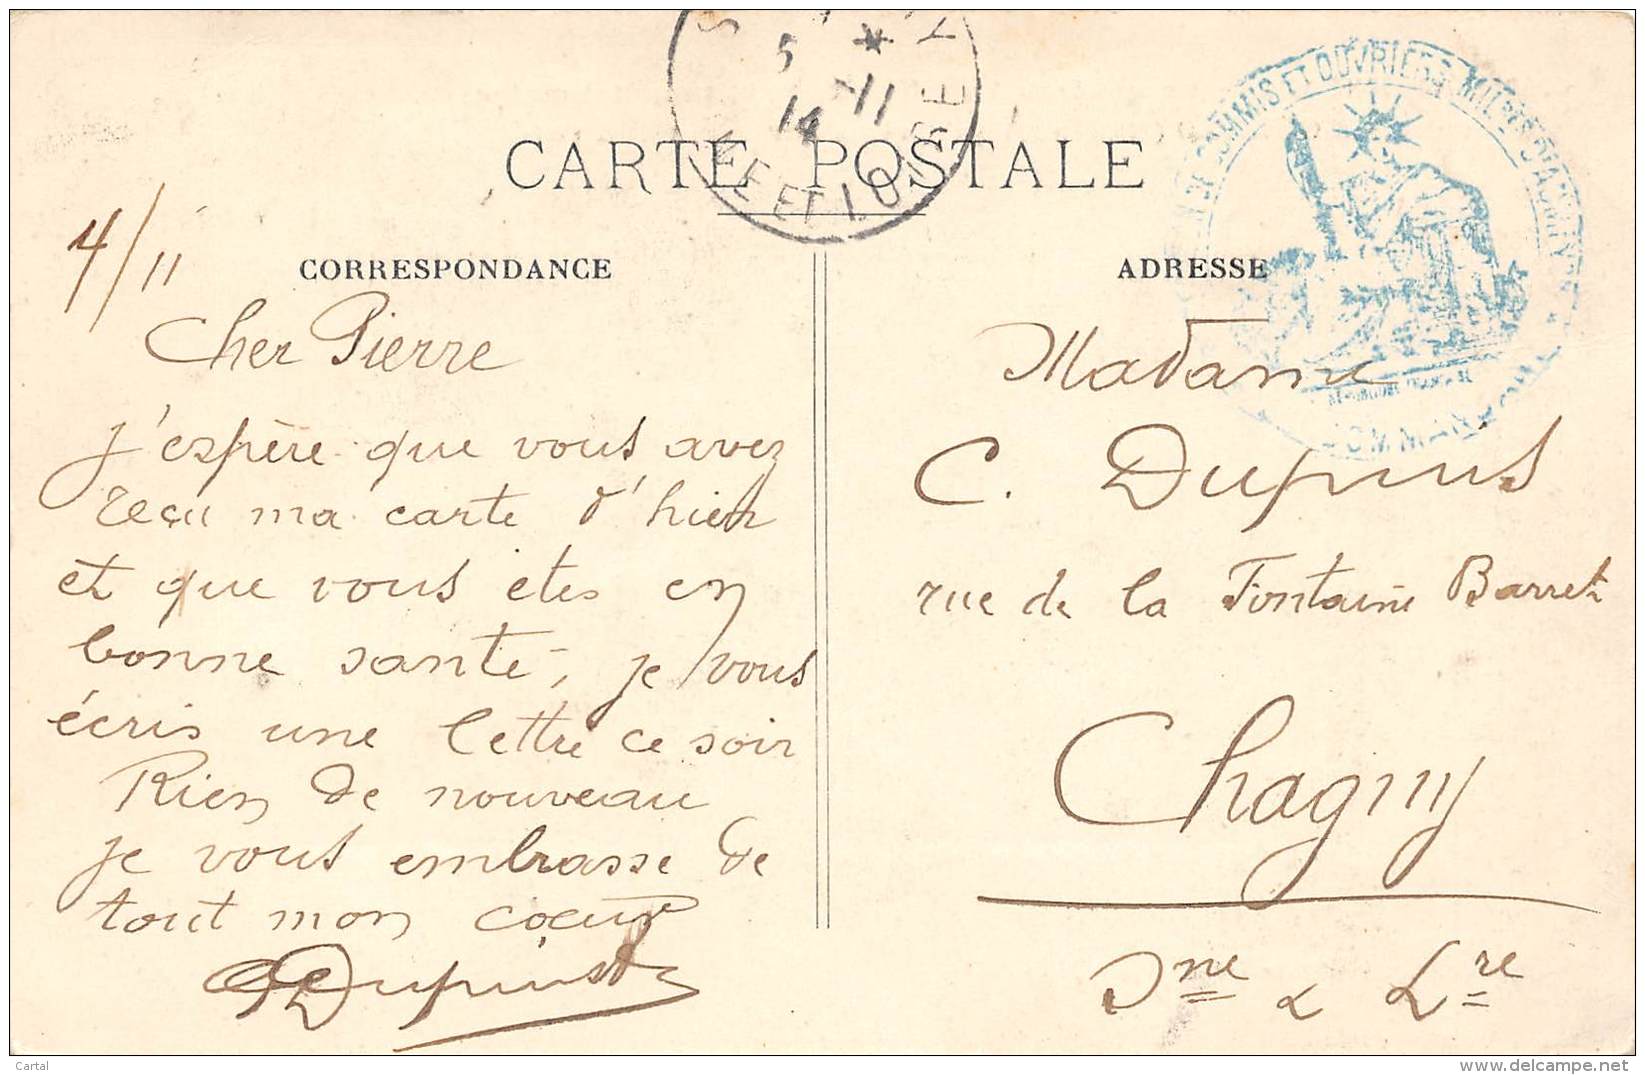 5 * 11
14
ET LOIRE
CARTE POSTALE
COMMIS ET OUVRIERS
4/11
CORRESPONDANCE
ADRESSE
Cher Pierre
j'espère que vous avez
reçu ma carte d'hier
et que vous êtes en
bonne santé, je vous
écris une lettre ce soir
Rien de nouveau
je vous embrasse de
tout mon coeur
C Dupuis
Madame
C. Dupuis
rue de la Fontaine Barret
Chagny
Sne & Lre
Cartal
delcampe.net